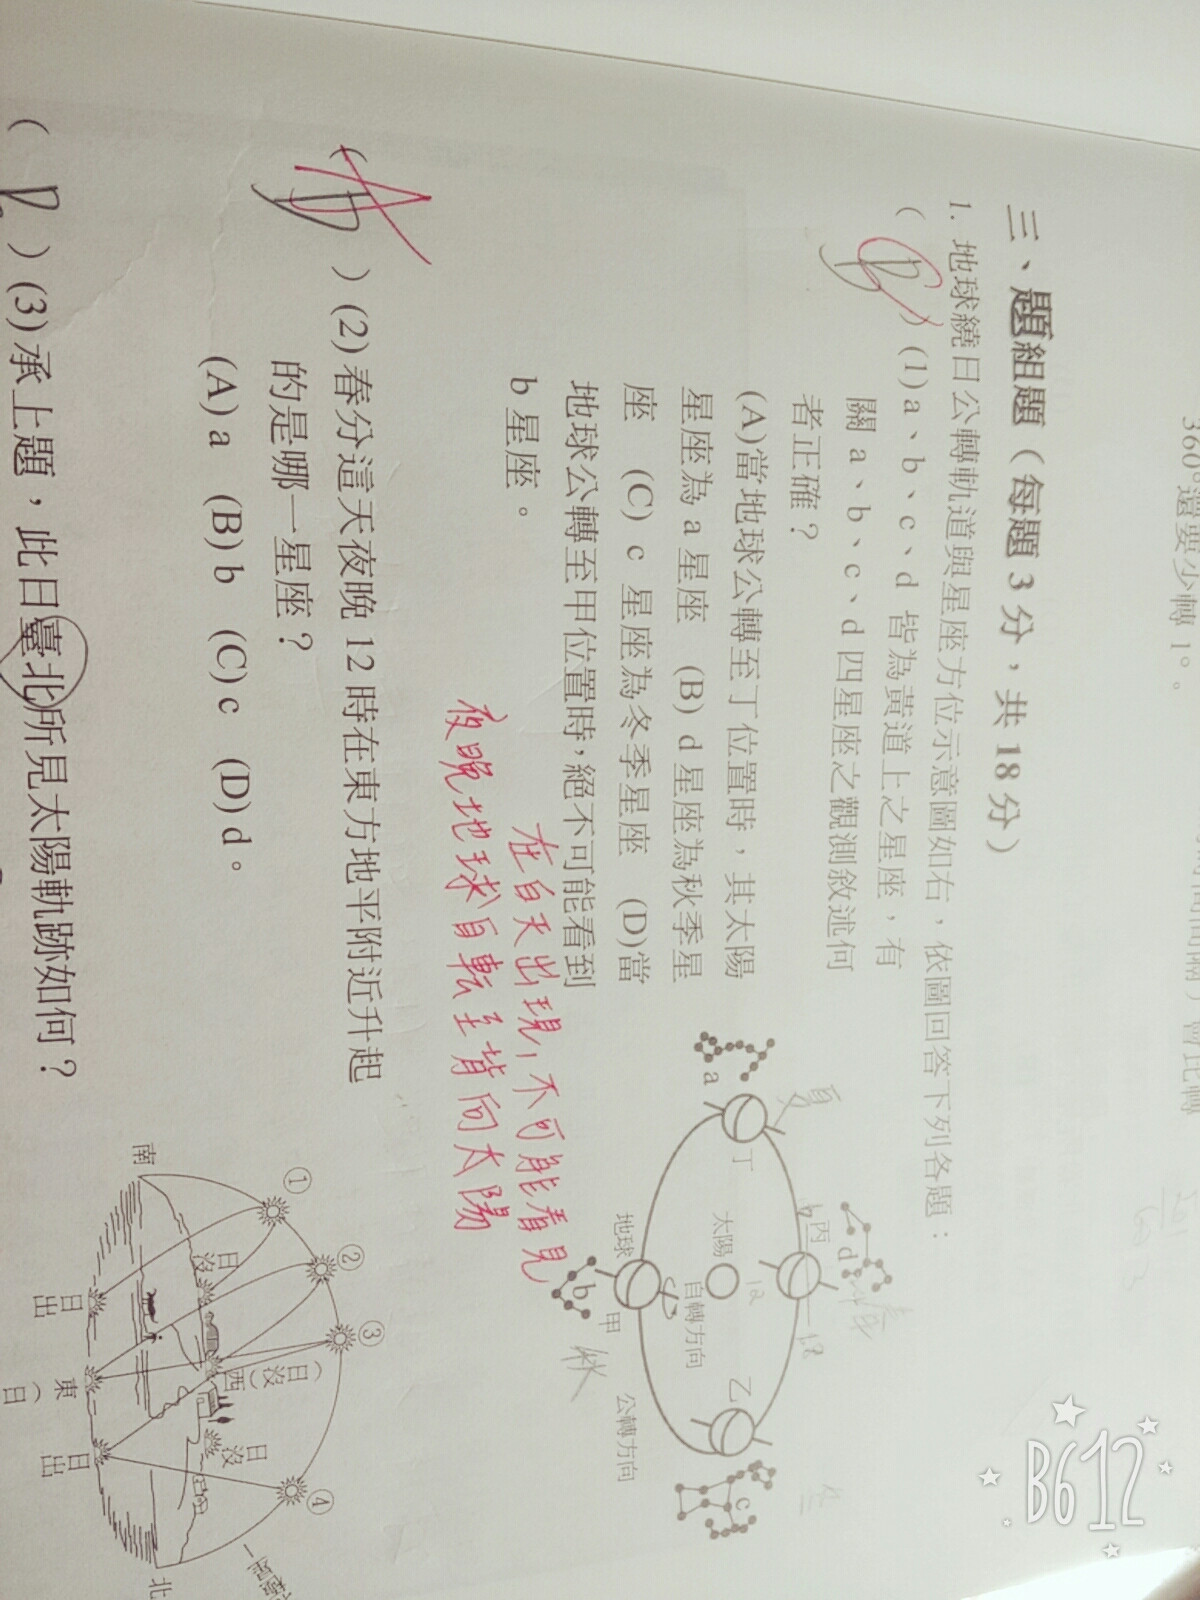 360°還要少轉1°。
三、題組題（每題3分，共18分）
1. 地球繞日公轉軌道與星座方位示意圖如右，依圖回答下列各題：
( ) (1) a、b、c、d 皆為黃道上之星座，有
關 a、b、c、d 四星座之觀測敘述何
者正確？
(A)當地球公轉至丁位置時，其太陽
星座為 a 星座 (B) d 星座為秋季星
座 (C) c 星座為冬季星座 (D)當
地球公轉至甲位置時，絕不可能看到
b 星座。
在白天出現，不可能看見
夜晚地球自転至背向太陽
( A ) (2) 春分這天夜晚 12 時在東方地平附近升起
的是哪一星座？
(A) a (B) b (C) c (D) d。
( D ) (3) 承上題，此日臺北所見太陽軌跡如何？
夏
a
丁
丙
d
太陽
自轉方向
地球
甲
b
秋
乙
c
公轉方向
①
②
③
④
南
北
日沒
日出
(日沒)
西
東
(日
日沒
日出
B612